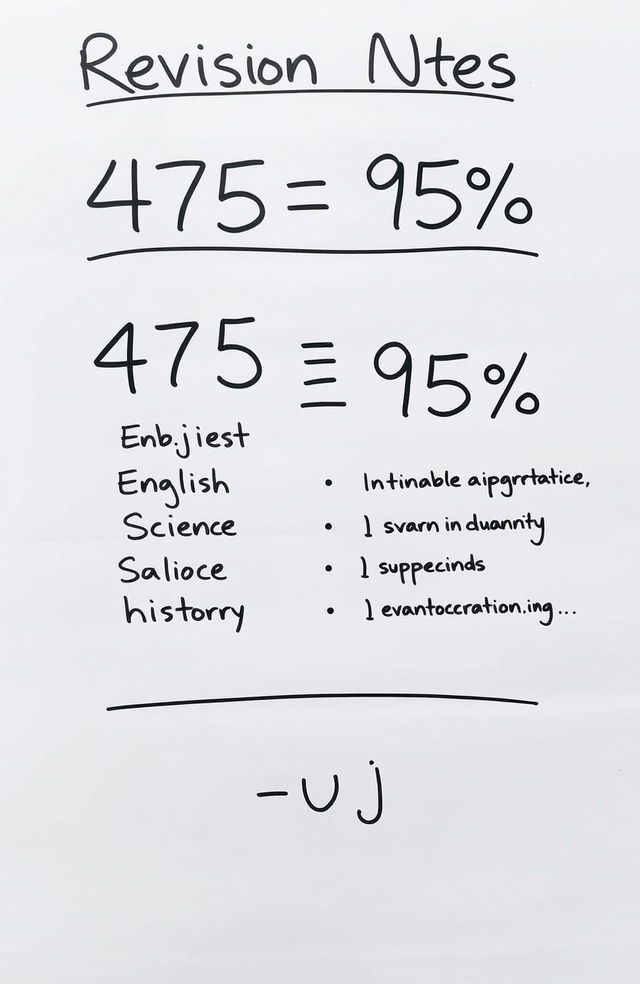 Revision Ntes
475 = 95%
475 ≡ 95%
Enb.jiest
English • Intinable aipgrrtatice,
Science • 1 svarn in duannity
Salioce • 1 suppecinds
historry • 1 evantoccration.ing...
-uj